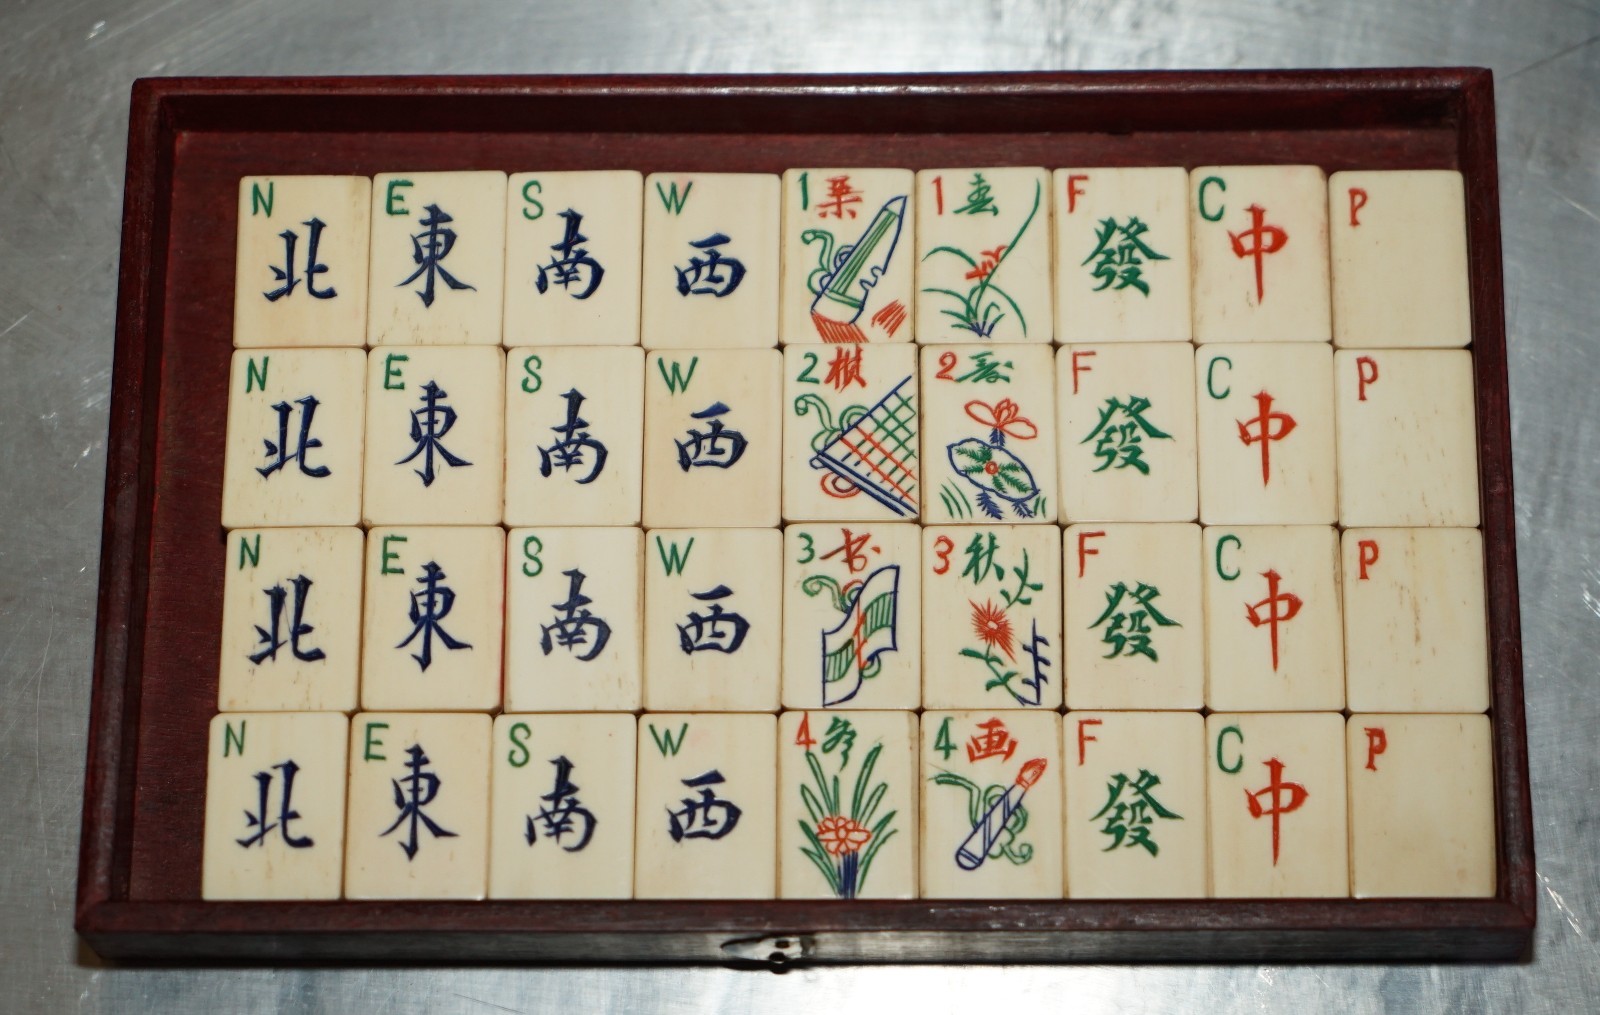 N 北 E 東 S 南 W 西 1 1 春 F 發 C 中 P
N 北 E 東 S 南 W 西 2 棋 2 夏 F 發 C 中 P
N 北 E 東 S 南 W 西 3 书 3 秋 F 發 C 中 P
N 北 E 東 S 南 W 西 4 冬 4 画 F 發 C 中 P